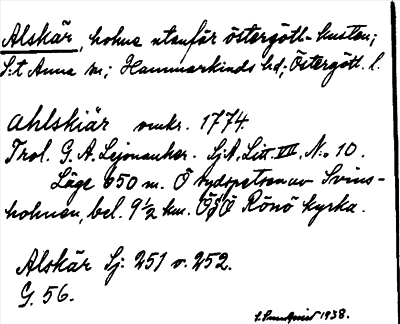 Alskär, holme utanför östergötl. kusten;
S:t Anna sn; Hammarkinds hd; Östergötl. l.
ahlskiär omkr. 1774.
Trol. G. A. Lejonanker. SjA, Litt. VII, No 10.
Läge 850 m. Ö sydspetsen av Svins-
holmen, bel. 9½ km. ÖSÖ Rönö kyrka.
Alskär Sj: 251 o. 252.
G. 56.
1938.